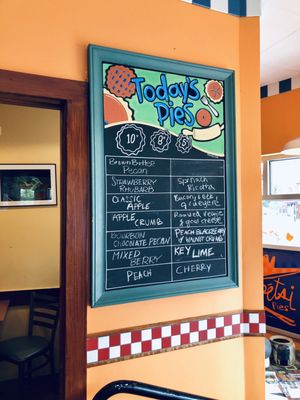 Today's
Pies
10"
8"
5"
Brown Butter
Pecan
Strawberry
Rhubarb
Classic
Apple
Apple
Crumb
Bourbon
Chocolate Pecan
Mixed
Berry
Peach
Spinach
Ricotta
Bacon, Leek, &
gruyere
Roasted Veggie
& goat cheese
Peach Blackberry
w/ Walnut Crumb
Key Lime
Cherry
Petsi
Pies